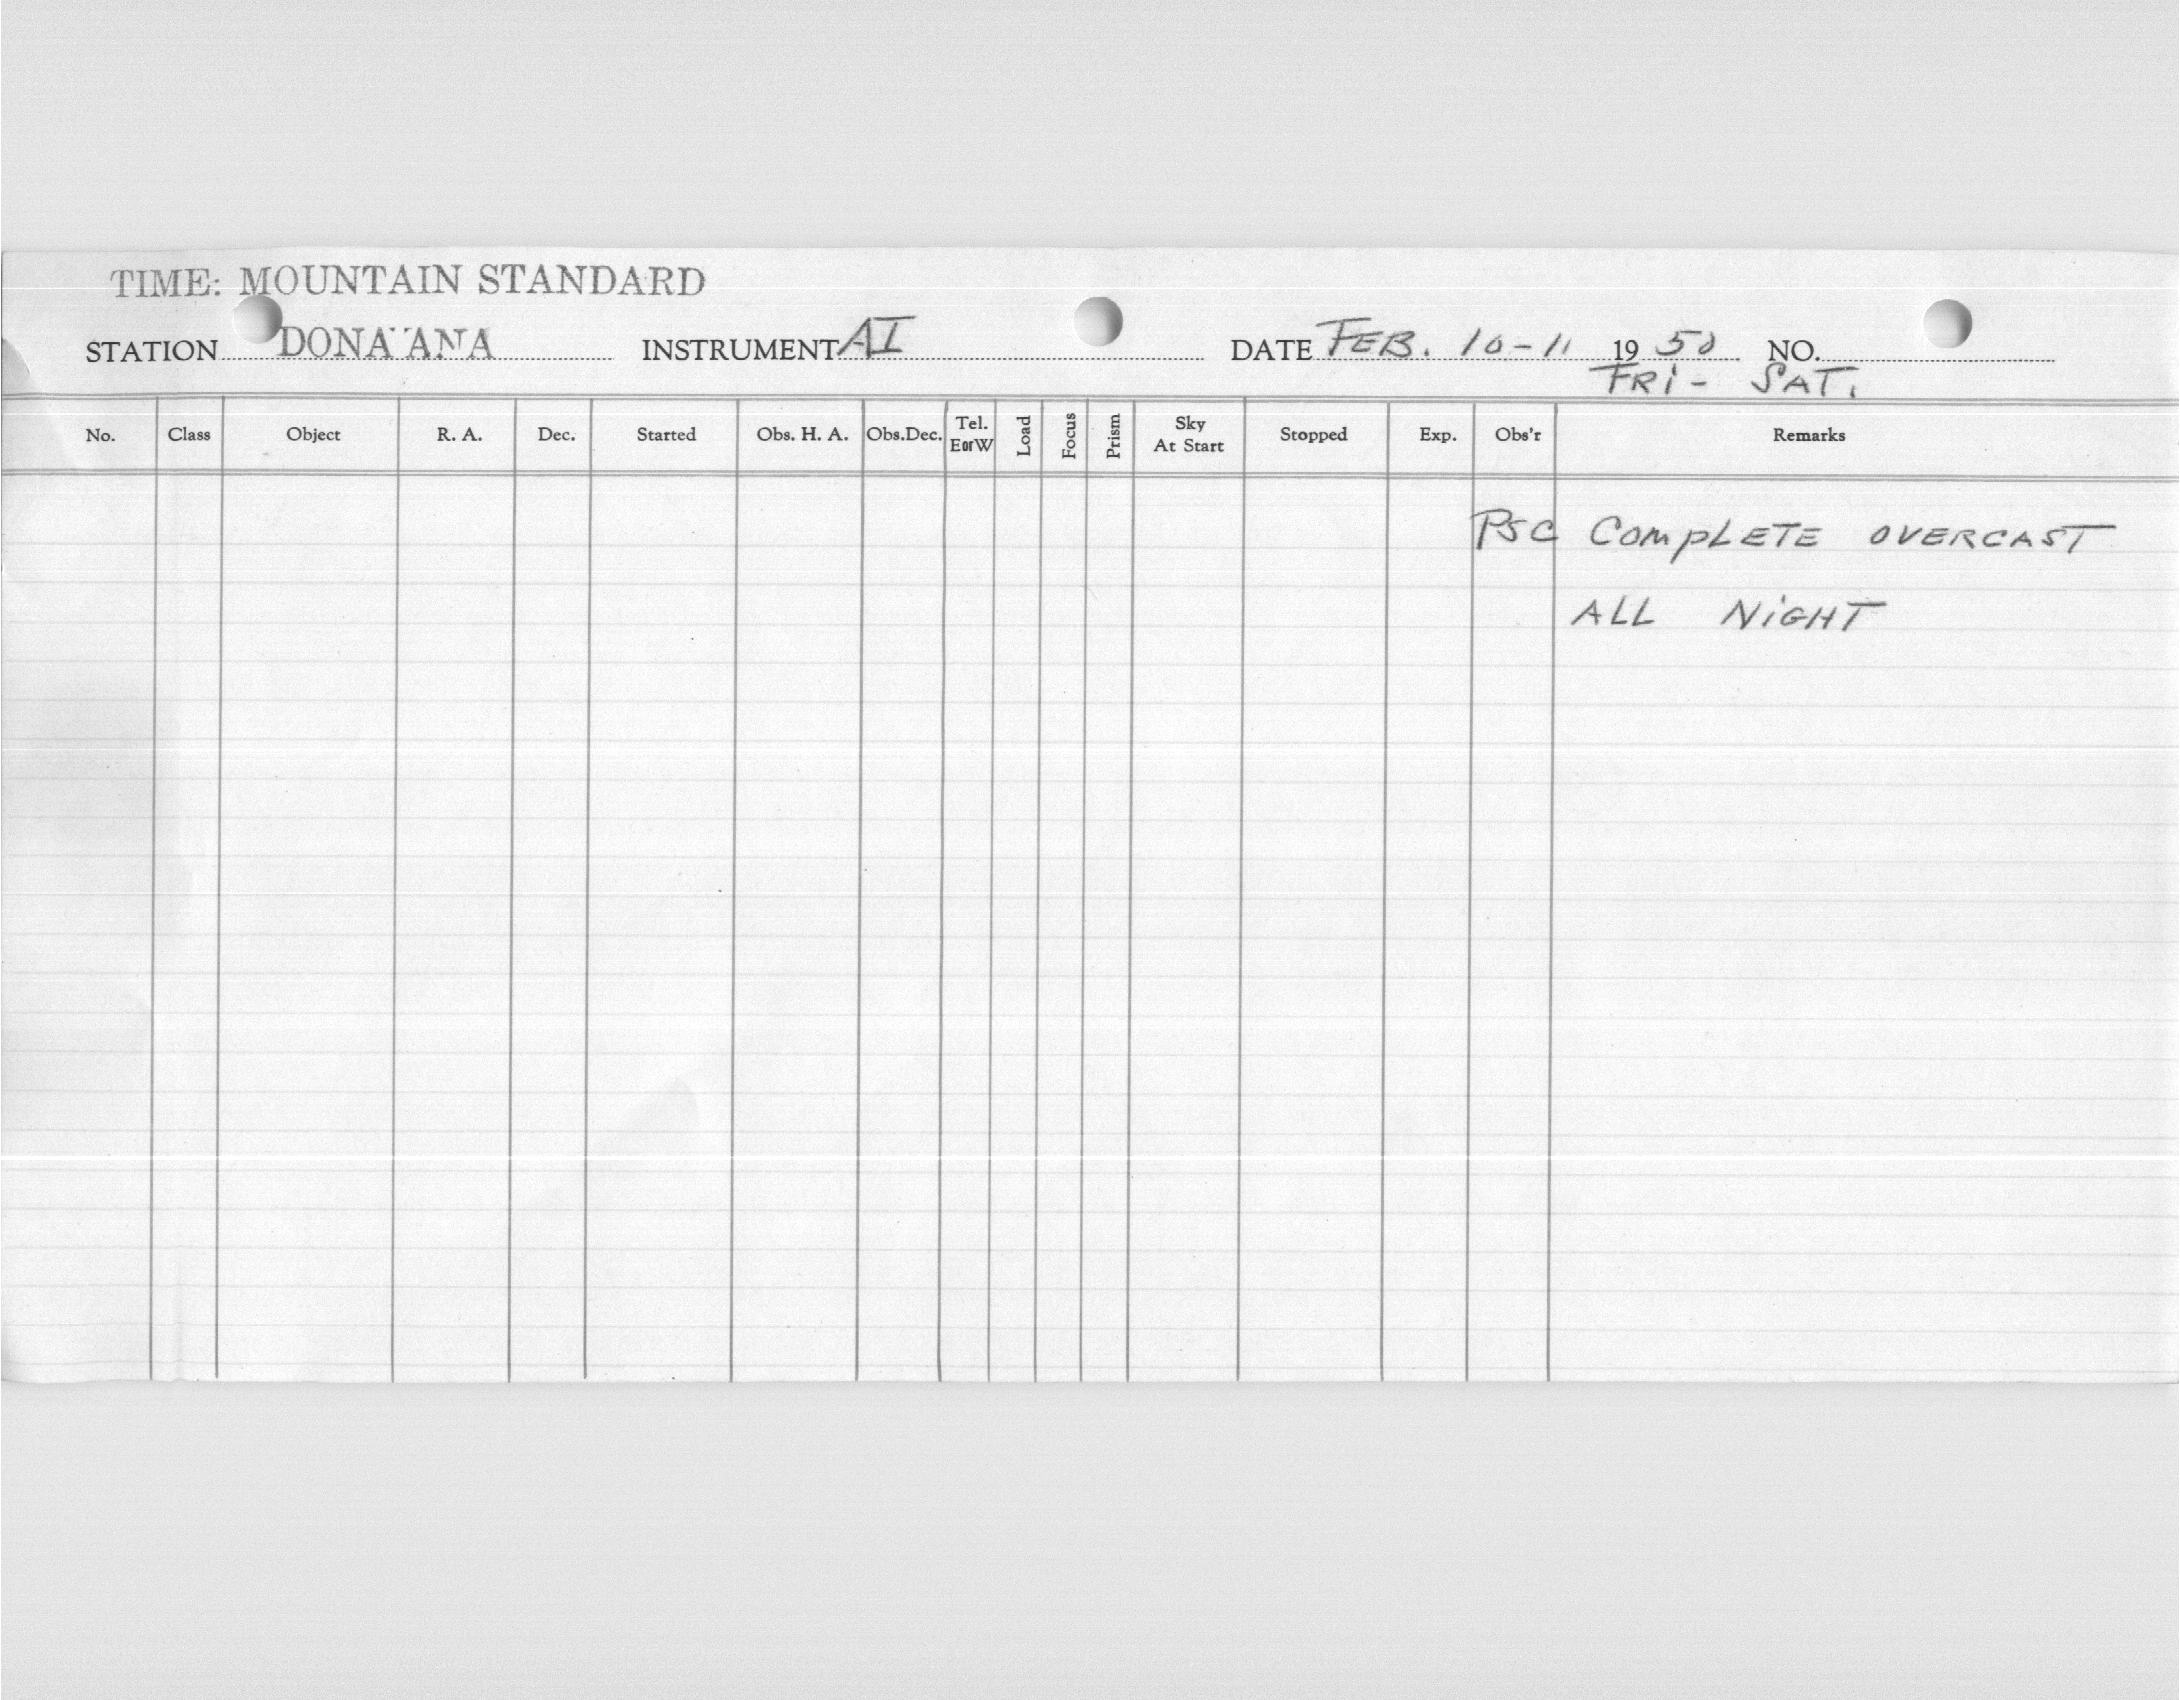 TIME: MOUNTAIN STANDARD
STATION DONA ANA INSTRUMENT AI DATE FEB. 10-11 1950 NO.
FRI- SAT.
No. Class Object R. A. Dec. Started Obs. H. A. Obs.Dec. Tel. EorW Load Focus Prism Sky At Start Stopped Exp. Obs'r Remarks
PSC COMPLETE OVERCAST
ALL NIGHT